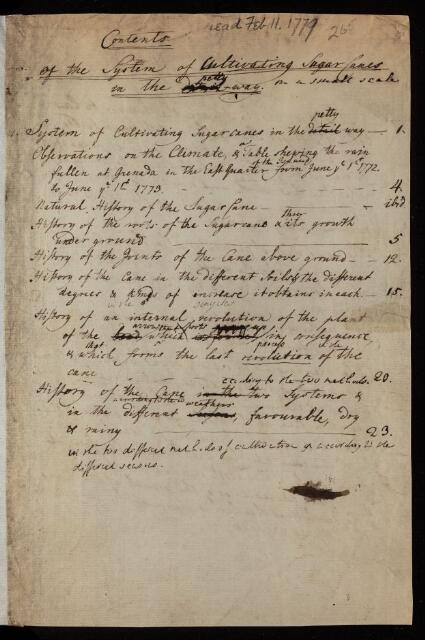 read Feb 11. 1779 26
Contents
of the System of Cultivating Sugar Canes
petty
in the way. on a small scale
petty
System of Cultivating Sugarcanes in the detail way — 1.
Observations on the Climate, & a Table shewing the rain
of the Island
fallen at Grenada in the East Quarter from June ye 1st 1772.
to June ye 1st 1773. — 4.
Natural History of the Sugar Cane — ibid
History of the roots of the Sugarcane & its growth
under ground — 5
History of the Joints of the Cane above ground — 12.
History of the Cane in the different Soils & the different
degrees & kinds of increase it obtains in each — 15.
History of an internal revolution of the plant
of the which in consequence,
& which forms the last revolution of the
cane according to the two methods. 20.
History of the Cane in the two Systems &
according to the weathers
in the different favourable, dry
& rainy — 23.
in the two different methods of cultivation & according to the
different seasons.